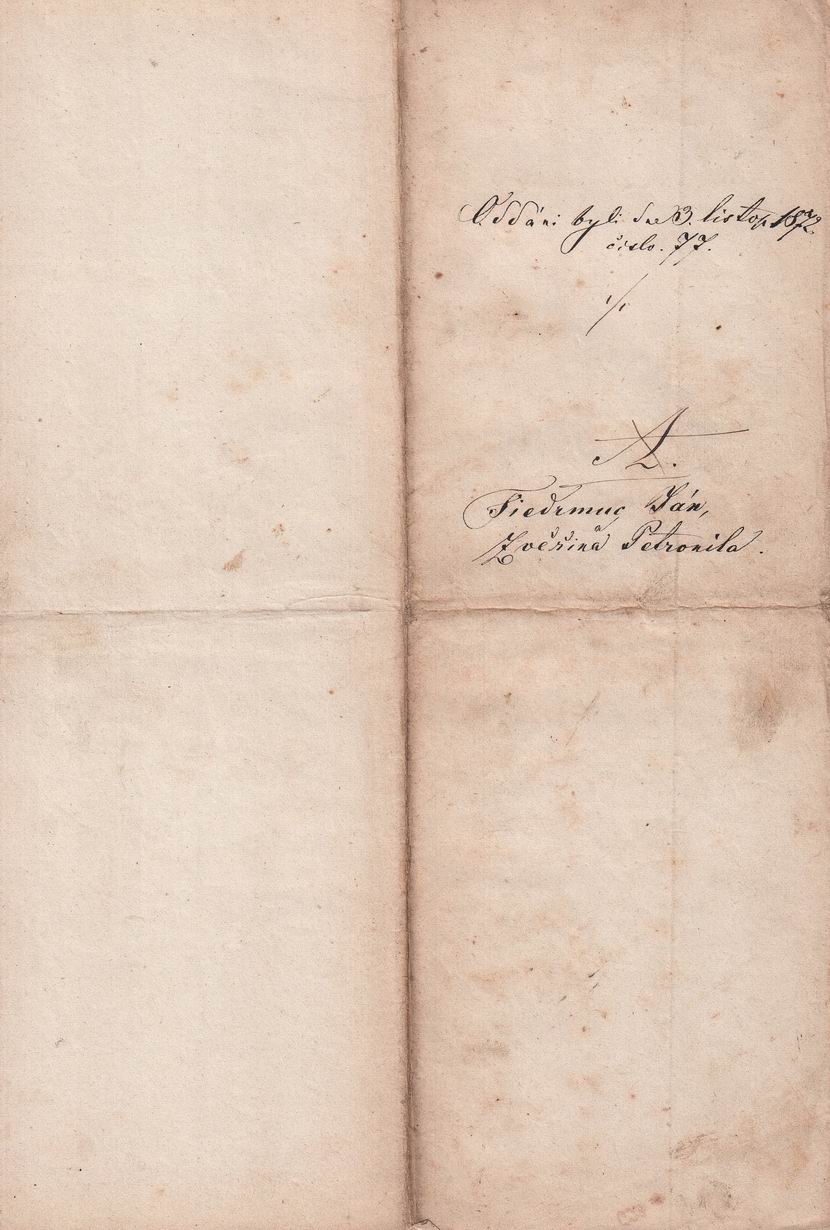 Oddáni byli dne 3. listop. 1872
číslo. 77.
Fiedrmuc Ján,
Zvěřina Petronila.